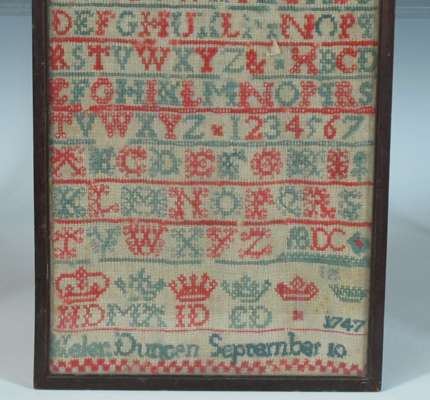 DEFGHIKLMNOPQ
RSTVWXYZ & ABCD
EFGHIKLMNOPRS
TVWXYZ 1234567
ABCDEFGHI
KLMNOPQRS
TVWXYZ DC
HD MA ID ED
1747
Helen Duncan September 10